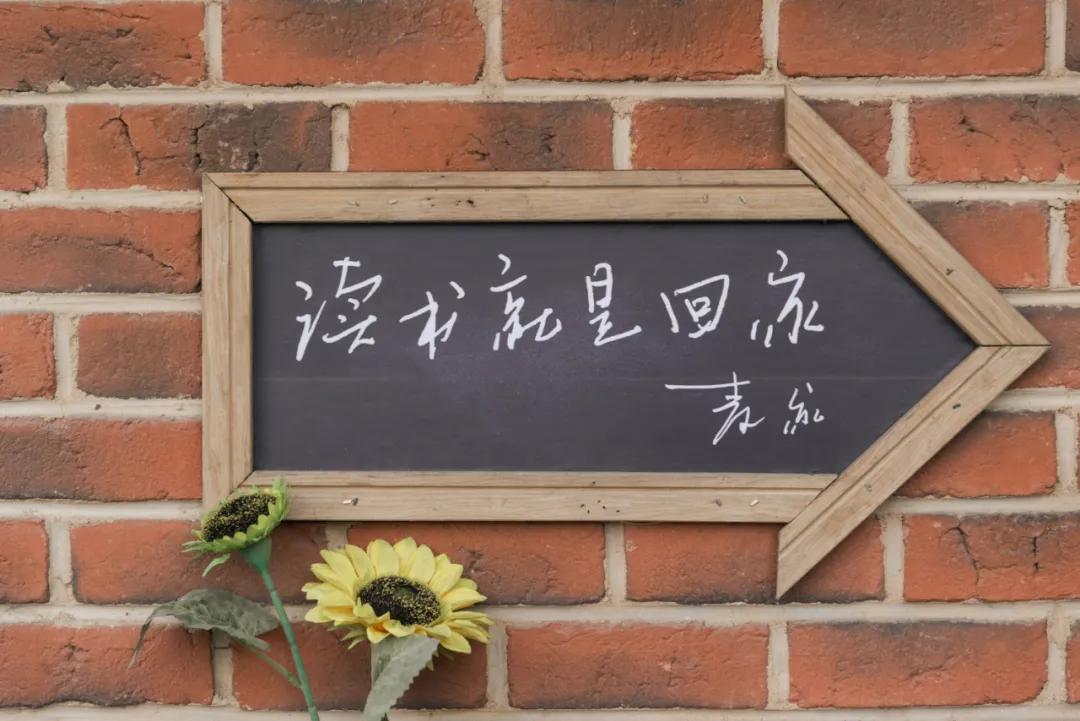 读书就是回家
麦家